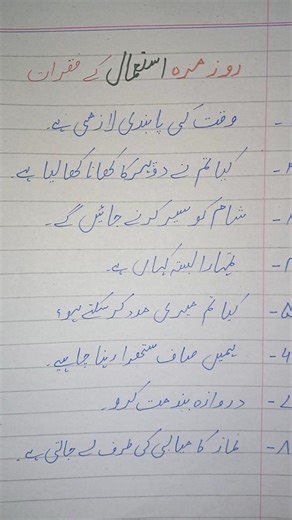 روزمرہ استعمال کے فقرات
وقت کی پابندی لازمی ہے۔
۲- کیا تم نے دوپہر کا کھانا کھا لیا ہے۔
شام کو سیر کرنے جائیں گے۔
تمہارا بستہ کہاں ہے۔
۵- کیا تم میری مدد کر سکتے ہو؟
۶- ہمیں صاف ستھرا رہنا چاہیے۔
۷- دروازہ بند مت کرو۔
۸- نماز کامیابی کی طرف لے جاتی ہے۔